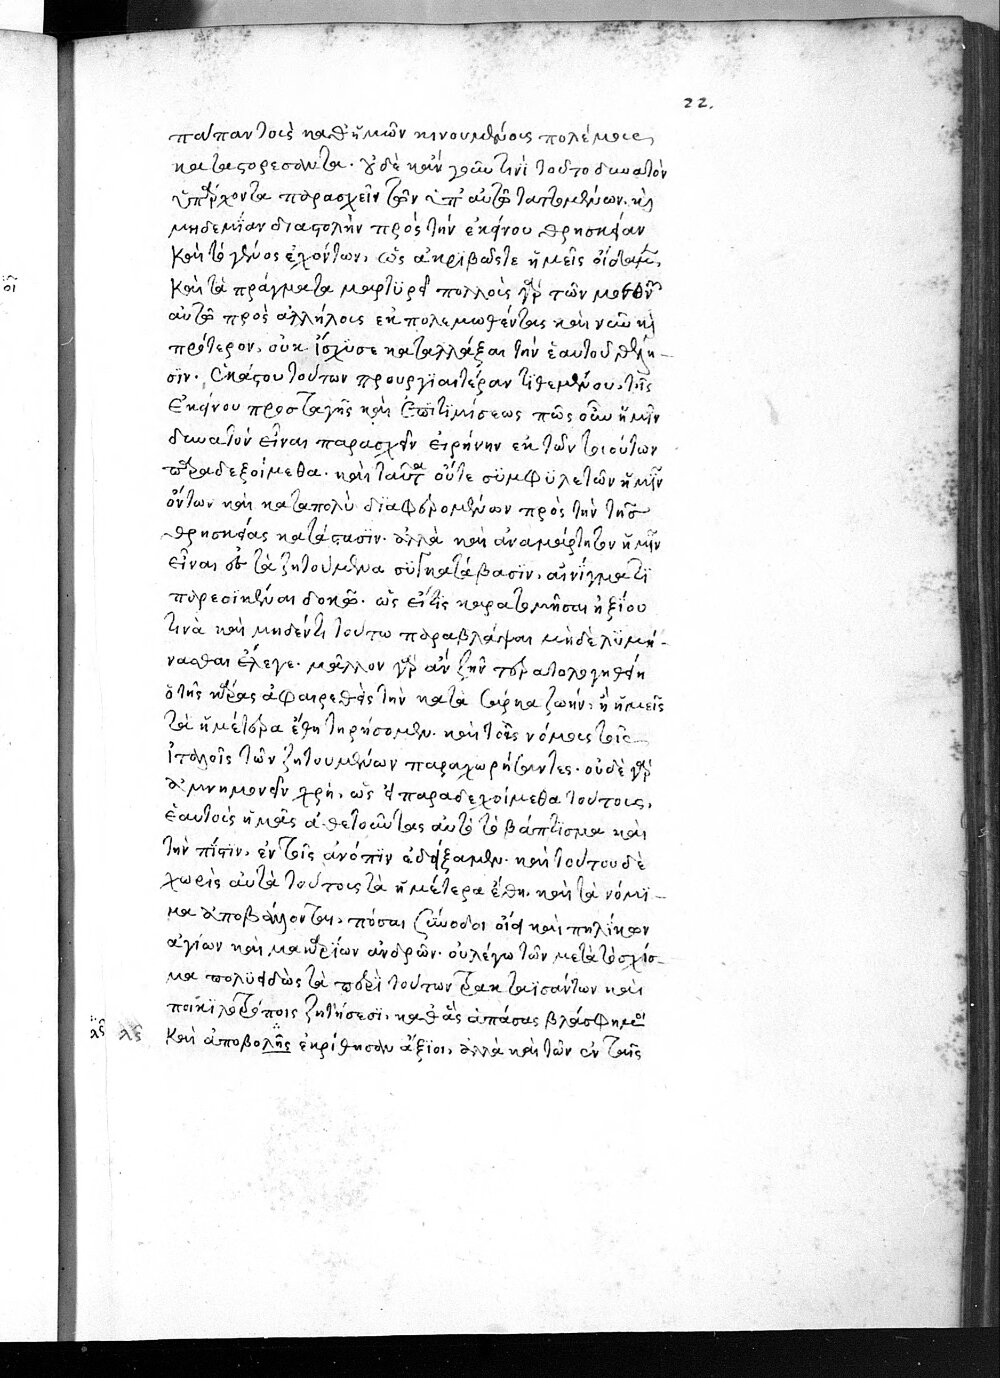 22.
παύπαν τοῖς καθ' ἡμῶν κινουμένοις πολέμοις
καταστορεσοντα. οὐδὲ κἂν γοῦν τινὶ τοῦτο δυνατὸν
ὑπάρχοντα παρασχεῖν τῶν ὑπ' αὐτῶ ταττομένων. καὶ
μηδεμίαν διαστολὴν πρὸς τὴν ἐκείνου θρησκείαν
καὶ τὸ γένος ἐχόντων, ὡς ἀκριβῶς τε ἡμεῖς οἴδαμεν,
καὶ τὰ πράγματα μαρτυρεῖ πολλοὺς γὰρ τῶν
αὐτῶ πρὸς ἀλλήλοις ἐκπολεμωθέντας καὶ νῦν καὶ
πρότερον, οὐκ ἴσχυσε καταλλάξαι τὴν ἑαυτοῦ θέλη-
σιν. ἑκάστου τούτων προυργιαιτέραν τιθεμένου, τῆς
ἐκείνου προσταγῆς καὶ ἐπιτιμίσεως πῶς οὖν ἡμῖν
δυνατὸν εἶναι παρασχεῖν εἰρήνην ἐκ τῶν τοιούτων
παραδεξοίμεθα. καὶ ταῦτα οὔτε συμφυλετῶν ἡμῖν
ὄντων καὶ καταπολὺ διαφερομένων πρὸς τὴν τῆς
θρησκείας κατάστασιν. ἀλλὰ καὶ ἀναμάρτητον ἡμῖν
εἶναι τὰ ζητούμενα συγκατάβασιν, αἰνίγματι
παρεοικέναι δοκῶ. ὡς εἴ τις καρατομῆσαι ἠξίου
τινὰ καὶ μηδέν τι τούτω παραβλάψαι μὴ δὲ λυμή-
νασθαι ἔλεγε. μᾶλλον γὰρ ἂν ζῆν
ὁ τῆς κάρας ἀφαιρεθεὶς τὴν κατὰ σάρκα ζωὴν, ἢ ἡμεῖς
τὰ ἡμέτερα ἔθη τηρήσομεν. καὶ τοῖς νόμοις τοῖς
ἰταλοῖς τῶν ζητουμένων παραχωρήσαντες. οὐδὲ γὰρ
ἀμνημονεῖν χρὴ, ὡς εἰ παραδεχοίμεθα τούτοις,
ἑαυτοὺς ἡμᾶς ἀθετοῦντας αὐτὸ τὸ βάπτισμα καὶ
τὴν πίστιν, ἐν τοῖς ἀνόπιν ἐδείξαμεν. καὶ τούτου δὲ
χωρὶς αὐτὰ τούτοις τὰ ἡμέτερα ἔθη. καὶ τὰ νόμι-
μα ἀποβάλλονται, πόσαι σύνοδοι οἷαι καὶ πηλίκων
ἁγίων καὶ μακαρίων ἀνδρῶν. οὐ λέγω τῶν μετὰ τὸ σχίσ-
μα πολυειδῶς τὰ περὶ τούτων πρακταϊσάντων καὶ
ποικιλοτρόποις ζητήσεσι, καθ' ἃς ἁπάσας βλάσφημοι
καὶ ἀποβολῆς ἐκρίθησαν ἄξιοι, ἀλλὰ καὶ τῶν ἐν ταῖς